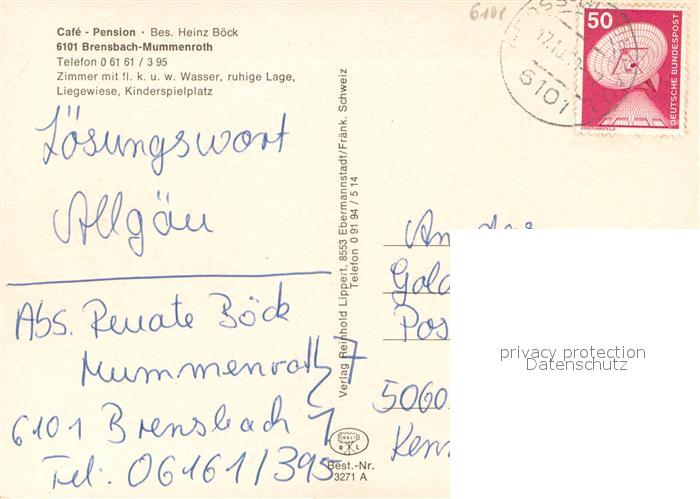 Café - Pension · Bes. Heinz Böck
6101 Brensbach-Mummenroth
Telefon 0 61 61 / 3 95
Zimmer mit fl. k. u. w. Wasser, ruhige Lage,
Liegewiese, Kinderspielplatz
Lösungswort
Allgäu
Abs. Renate Böck
Mummenroth 7
6101 Brensbach 1
Tel: 06161/395
Verlag Reinhold Lippert, 8553 Ebermannstadt/Fränk. Schweiz
Telefon 0 91 94 / 5 14
Best.-Nr.
3271 A
6101
6101
50
DEUTSCHE BUNDESPOST
ERDEFUNKSTELLE
An das
Gold
Pos
5060
Ken
privacy protection
Datenschutz